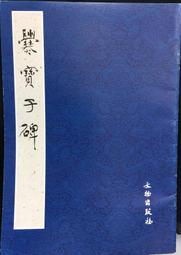 爨寳子碑
文物出版社